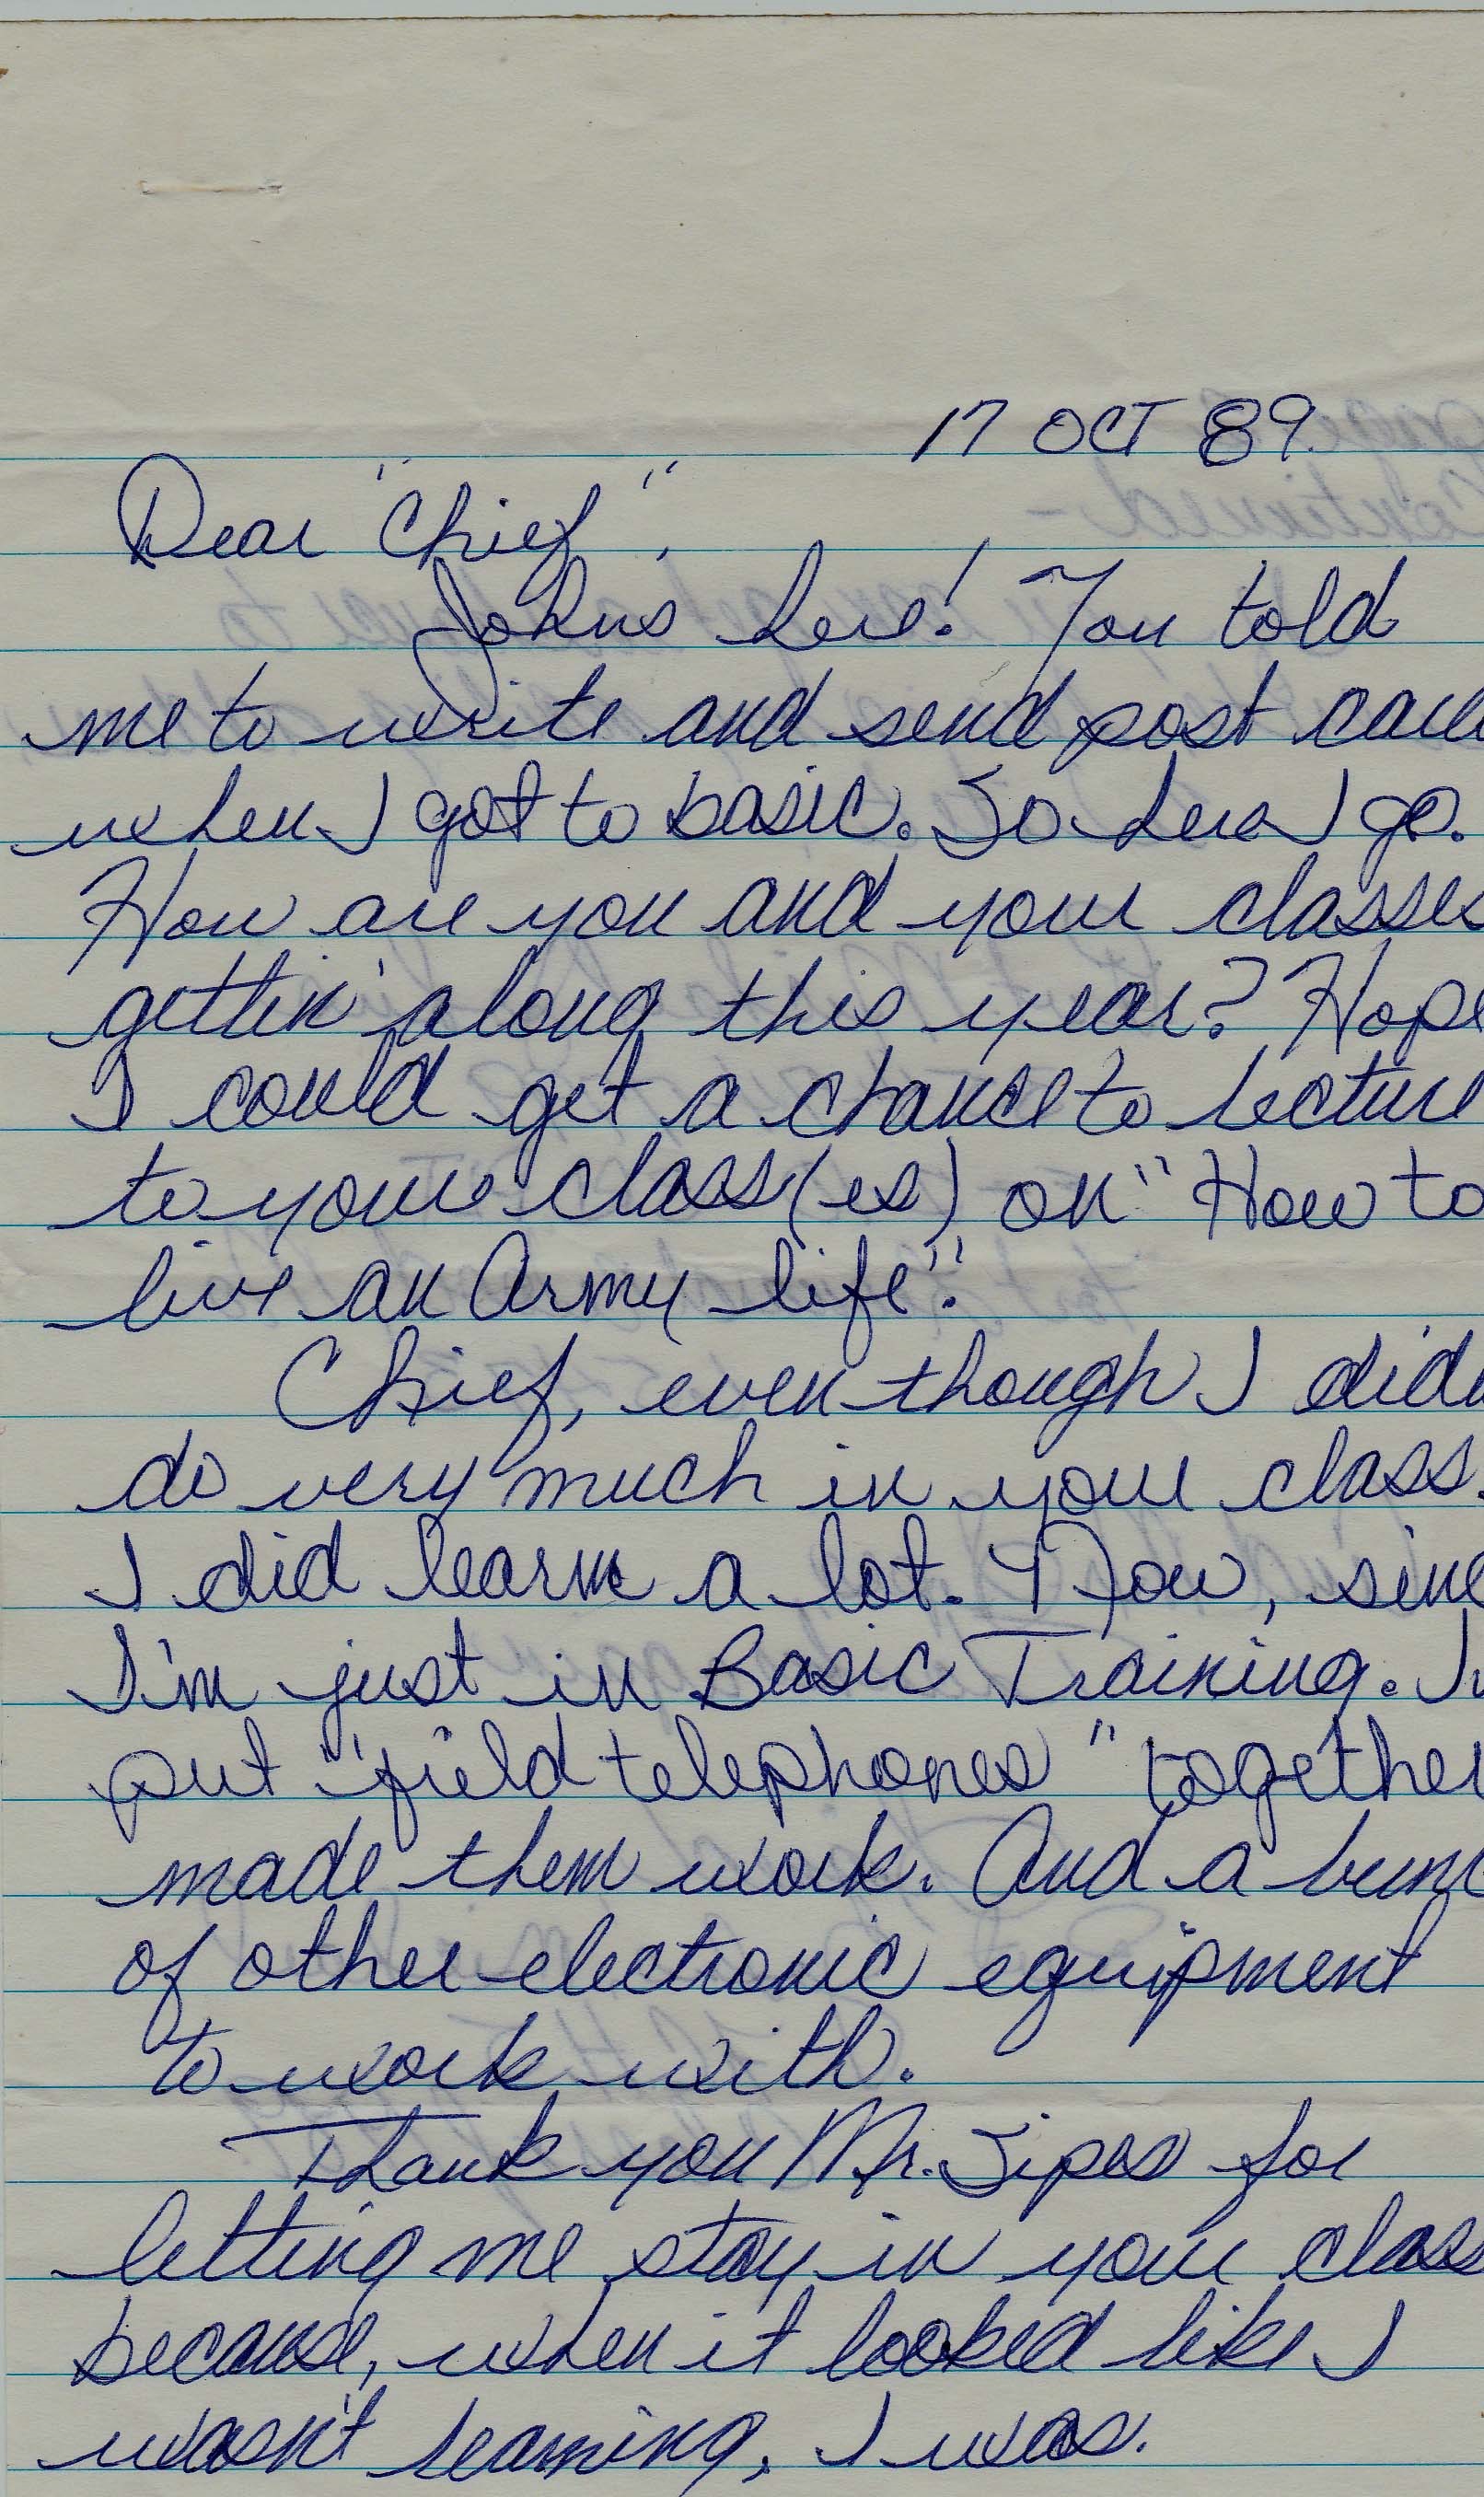 17 OCT 89.
Dear "Chief",
Johns here! You told
me to write and send post card
when I got to basic. So here I go.
How are you and your classes
gettin' along this year? Hope
I could get a chance to lecture
to your class(es) on "How to
live an Army life".
Chief, even though I didn
do very much in your class.
I did learn a lot. Now, sinc
I'm just in Basic Training. I
put "field telephones" together
made them work. And a bunc
of other electronic equipment
to work with.
Thank you Mr. Sipes for
letting me stay in your class
because, when it looked like I
wasn't learning, I was.